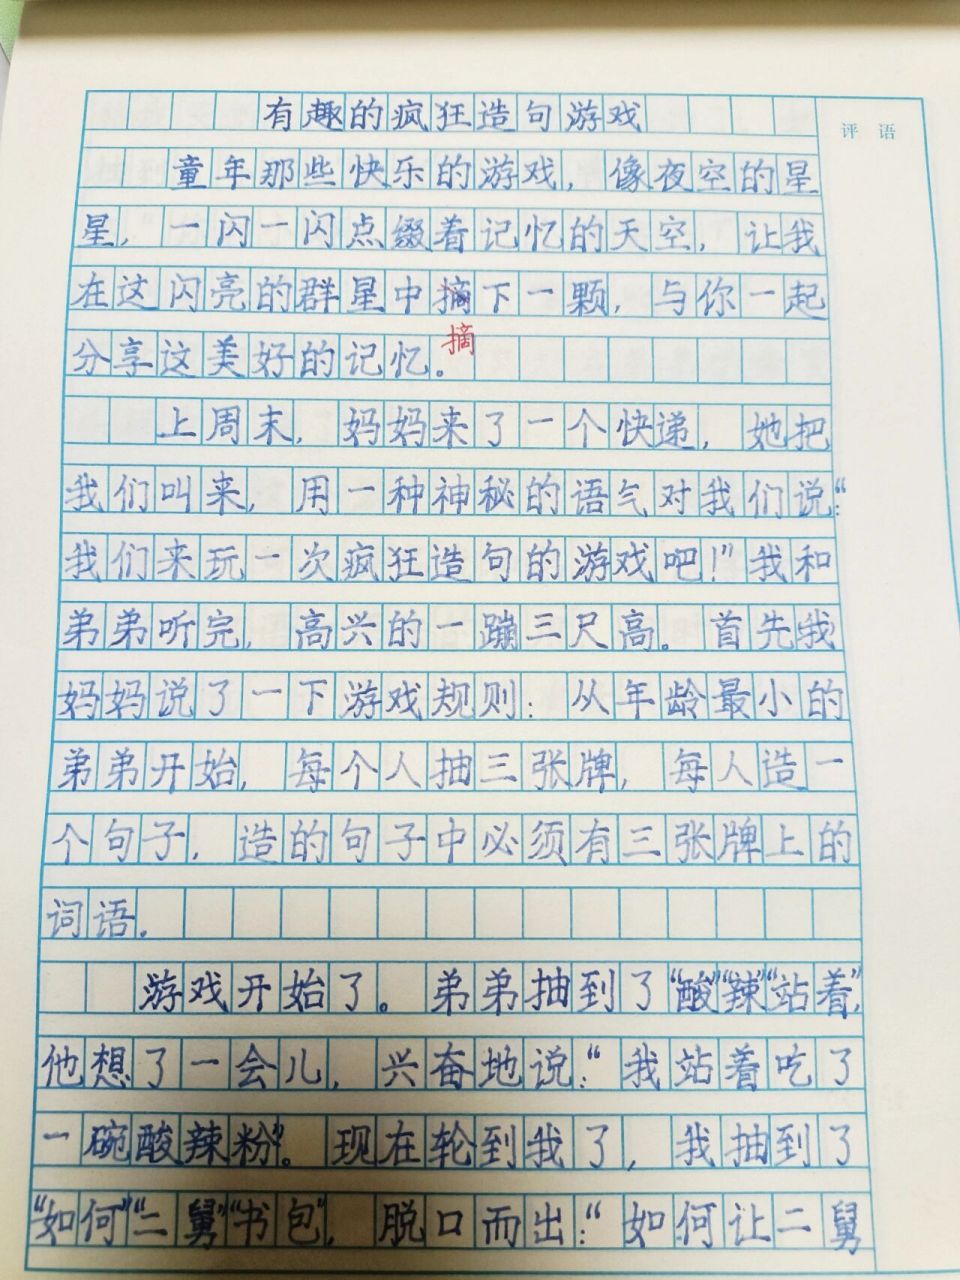 有趣的疯狂造句游戏
评 语
童年那些快乐的游戏，像夜空的星
星，一闪一闪点缀着记忆的天空，让我
在这闪亮的群星中摘下一颗，与你一起
摘
分享这美好的记忆。
上周末，妈妈来了一个快递，她把
我们叫来，用一种神秘的语气对我们说：“
我们来玩一次疯狂造句的游戏吧！”我和
弟弟听完，高兴的一蹦三尺高。首先我
妈妈说了一下游戏规则：从年龄最小的
弟弟开始，每个人抽三张牌，每人造一
个句子，造的句子中必须有三张牌上的
词语。
游戏开始了。弟弟抽到了“酸”“辣”“站着”，
他想了一会儿，兴奋地说：“我站着吃了
一碗酸辣粉”。现在轮到我了，我抽到了
“如何”“二舅”“书包”，脱口而出：“如何让二舅